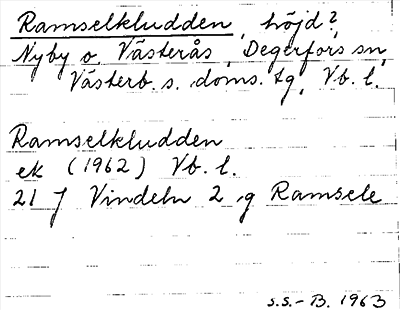 Ramselkludden, höjd?
Nyby o. Västerås, Degerfors sn,
Västerb. s. doms. tg, Vb. l.
Ramselkludden
ek (1962) Vb. l.
21 J Vindeln 2 g Ramsele
S.S.-B. 1963